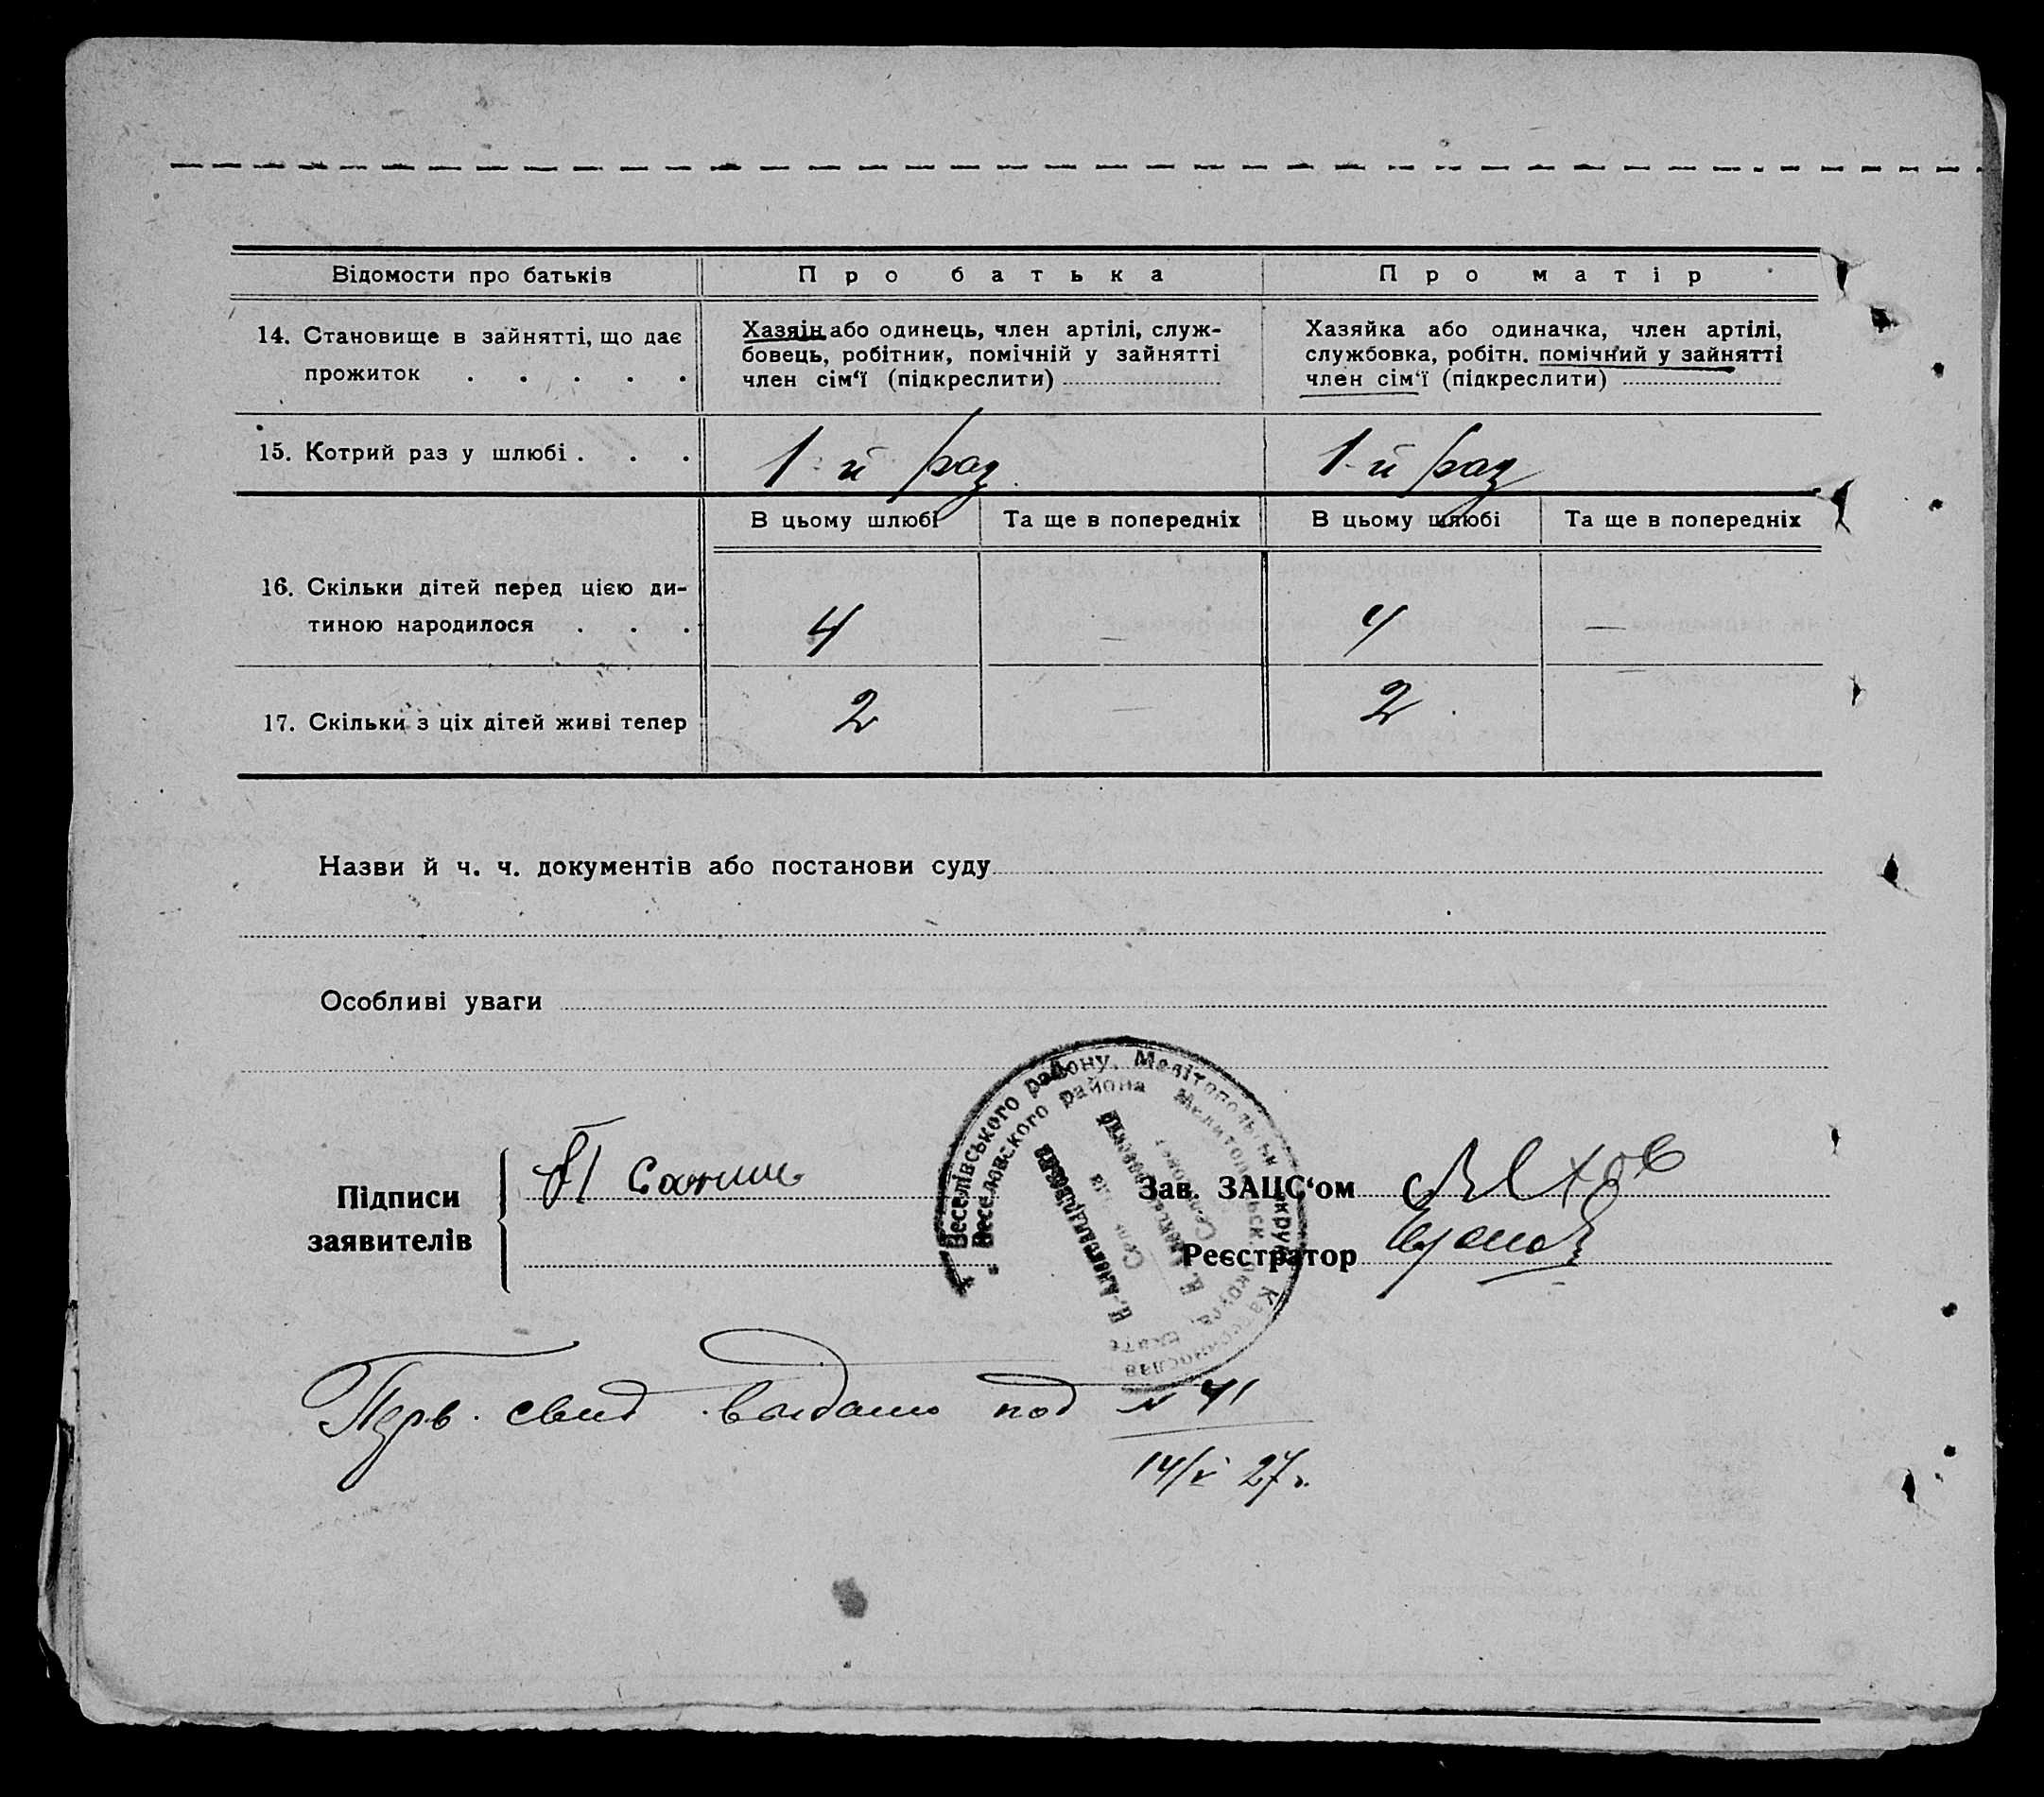 Відомости про батьків
Про батька
Про матір
14. Становище в зайнятті, що дає
прожиток . . . . .
Хазяїн або одинець, член артілі, служ-
бовець, робітник, помічній у зайнятті
член сім'ї (підкреслити)
Хазяйка або одиначка, член артілі,
службовка, робітн. помічний у зайнятті
член сім'ї (підкреслити)
15. Котрий раз у шлюбі . . .
1-й раз
1-й раз
В цьому шлюбі
Та ще в попередніх
В цьому шлюбі
Та ще в попередніх
16. Скільки дітей перед цією ди-
тиною народилося . . .
4
—
4
—
17. Скільки з ціх дітей живі тепер
2
—
2
—
Назви й ч. ч. документів або постанови суду
Особливі уваги
Веселівського району, Мелітопольськ округи
Веселовского района Мелитопольск. округа,
Підписи
заявителів
Зав. ЗАЦС'ом
Реєстратор
Перв. свид выдано под № 41
14/V 27г.